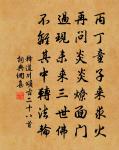 丙丁童子来求火
再问炎炎烧面门
过现未来三世佛
不解其中转法轮
释道川颂古二十八首
词典网集